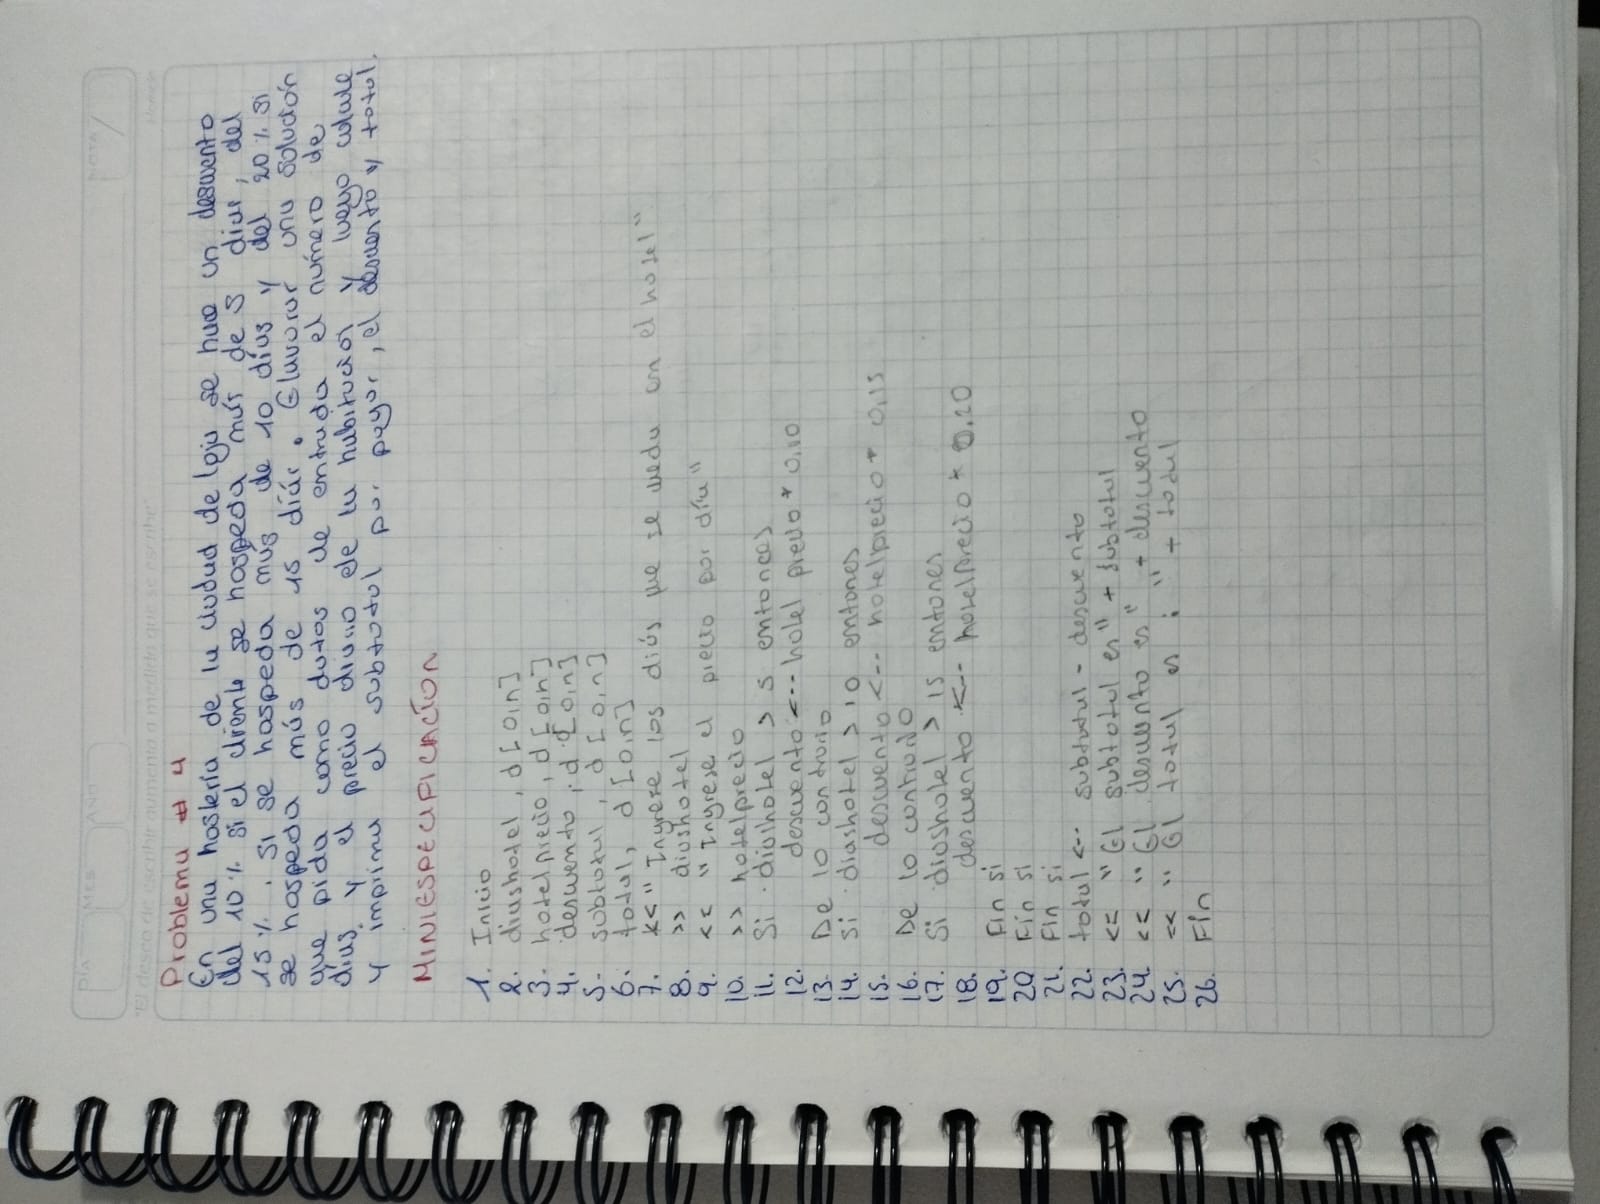 DÍA MES AÑO NOTA
"El deseo de escribir aumenta a medida que se escribe" Erasmo
Problema # 4
En una hostería de la ciudad de Loja se hace un descuento
del 10% si el cliente se hospeda más de 5 días, del
15%. Si se hospeda más de 10 días y del 20% si
se hospeda más de 15 días. Elavorar una solución
que pida como datos de entrada el número de
días y el precio diario de la habitación y luego calcule
y imprima el subtotal por pagar, el descuento y total.
MINIESPECIFICACIÓN
1. Inicio
2. diashotel, d [0,n]
3. hotelprecio, d [0,n]
4. descuento, d [0,n]
5. subtotal, d [0,n]
6. total, d [0,n]
7. << "Ingrese los diás que se queda en el hotel"
8. >> diashotel
9. << "Ingrese el precio por día"
10. >> hotelprecio
11. Si diashotel > 5 entonces
12. descuento <-- hotel precio * 0,10
13. De lo contrario
14. Si diashotel > 10 entonces
15. descuento <-- hotelprecio * 0,15
16. De lo contrario
17. Si diashotel > 15 entonces
18. descuento <-- hotelprecio * 0.20
19. Fin si
20 Fin si
21. Fin si
22. total <-- subtotal - descuento
23. << "El subtotal es" + subtotal
24. << "El descuento es" + descuento
25. << "El total es : " + total
26. Fin